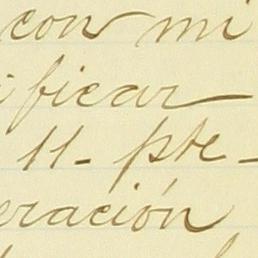 con mi
ificar
11- pte-
eración